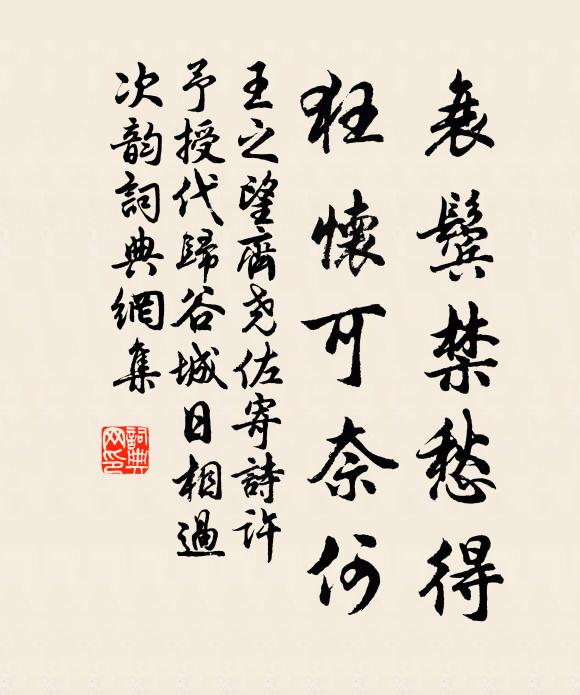 衰鬢禁愁得
狂懷可奈何
王之望齊尧佐寄詩許
予授代歸谷城日相過
次韵詞典網集
詞典
网印